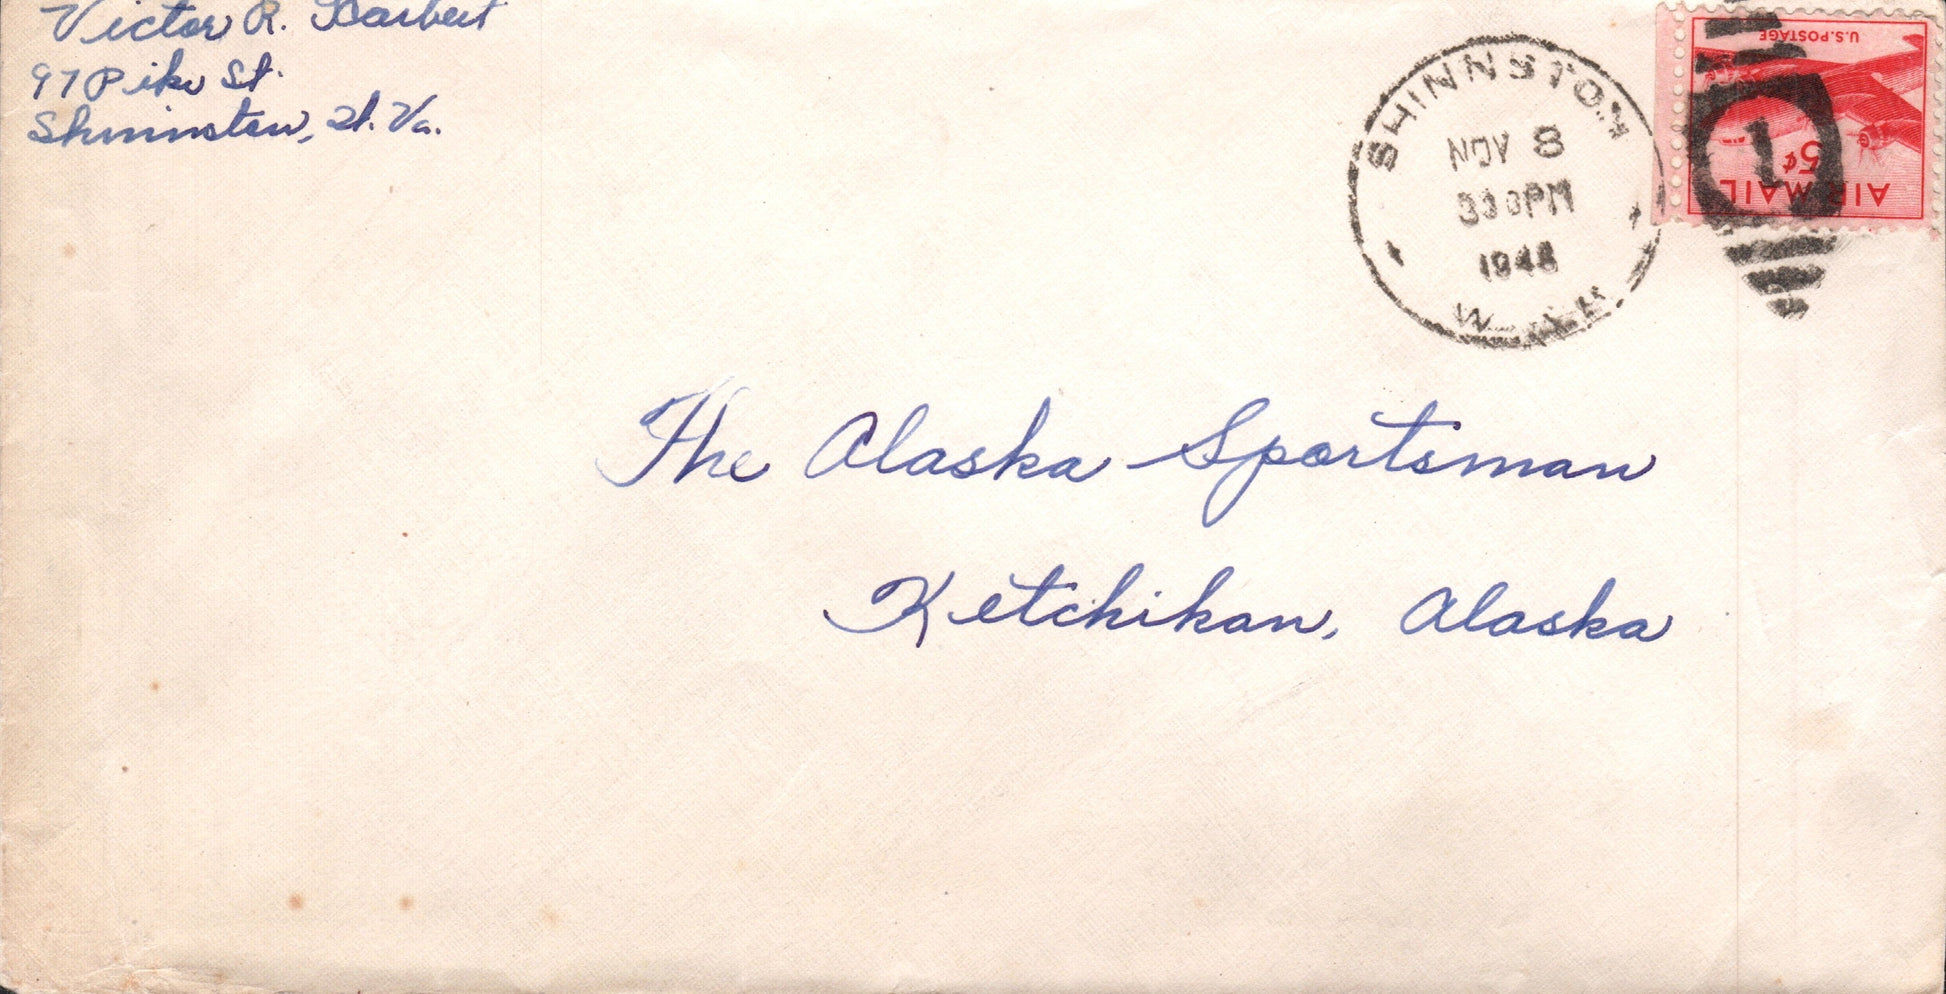 Victor R. Barbert
97 Pike St.
Shinnston, W. Va.
SHINNSTON
NOV 8
330PM
1948
W. VA.
U.S. POSTAGE
5¢
AIR MAIL
1
The Alaska Sportsman
Ketchikan, Alaska